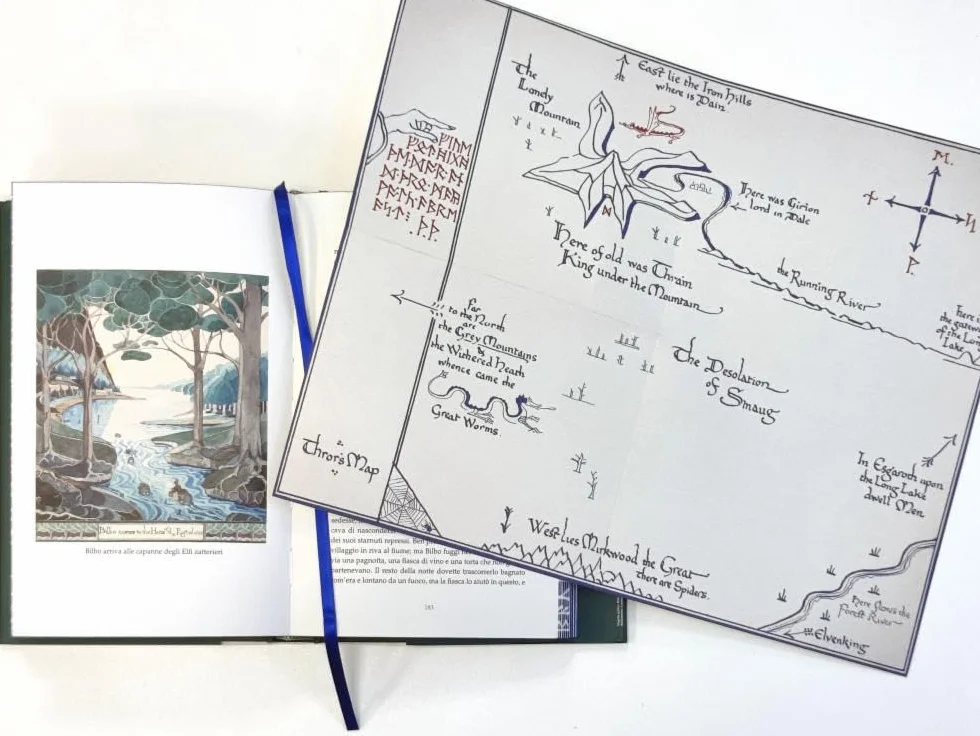 Bilbo comes to the Huts of the Raft-elves
Bilbo arriva alle capanne degli Elfi zatterieri
East lie the Iron Hills
where is Dain.
The
Lonely
Mountain
Here was Girion
lord in Dale
Here of old was Thrain
King under the Mountain
the Running River
far
to the North
are
the Grey Mountains
&
the Withered Heath
whence came the
Great Worms.
The Desolation
of Smaug
Thror's Map
In Esgaroth upon
the Long Lake
dwell Men
West lies Mirkwood the Great
there are Spiders.
Here flows the
Forest River
Elvenking
cava di
dei suoi starnuti repressi. Ben
villaggio in riva al fiume; ma Bilbo fuggì
via una pagnotta, una fiasca di vino e una torta che
partenevano. Il resto della notte dovette trascorrerlo bagnato
com'era e lontano da un fuoco, ma la fiasca lo aiutò in questo, e
183